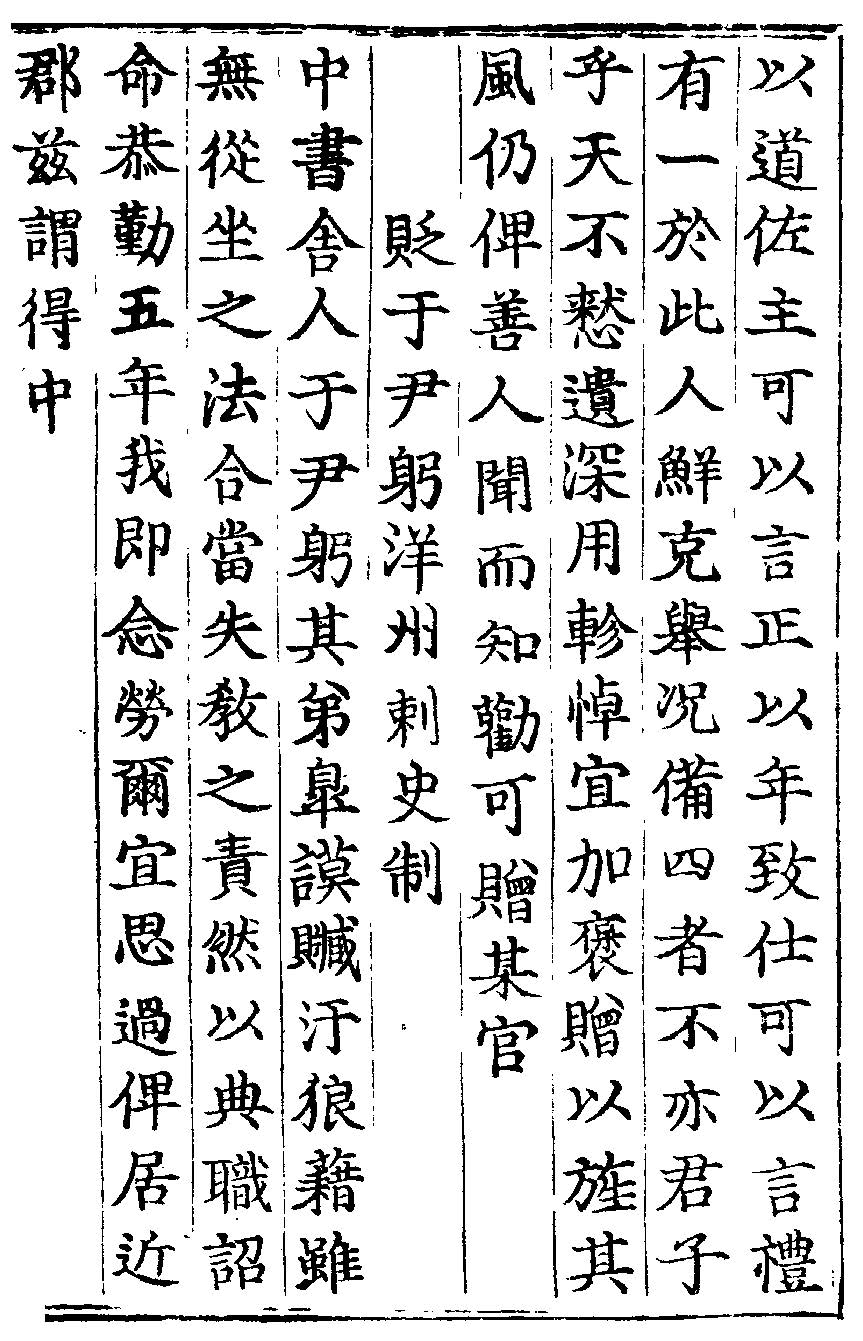 以道佐主可以言正以年致仕可以言禮
有一於此人鮮克舉况備四者不亦君子
乎天不憖遺深用軫悼宜加褒贈以旌其
風仍俾善人聞而知勸可贈某官
貶于尹躬洋州刺史制
中書舍人于尹躬其弟臯謨贓汙狼藉雖
無從坐之法合當失教之責然以典職詔
命恭勤五年我即念勞爾宜思過俾居近
郡兹謂得中